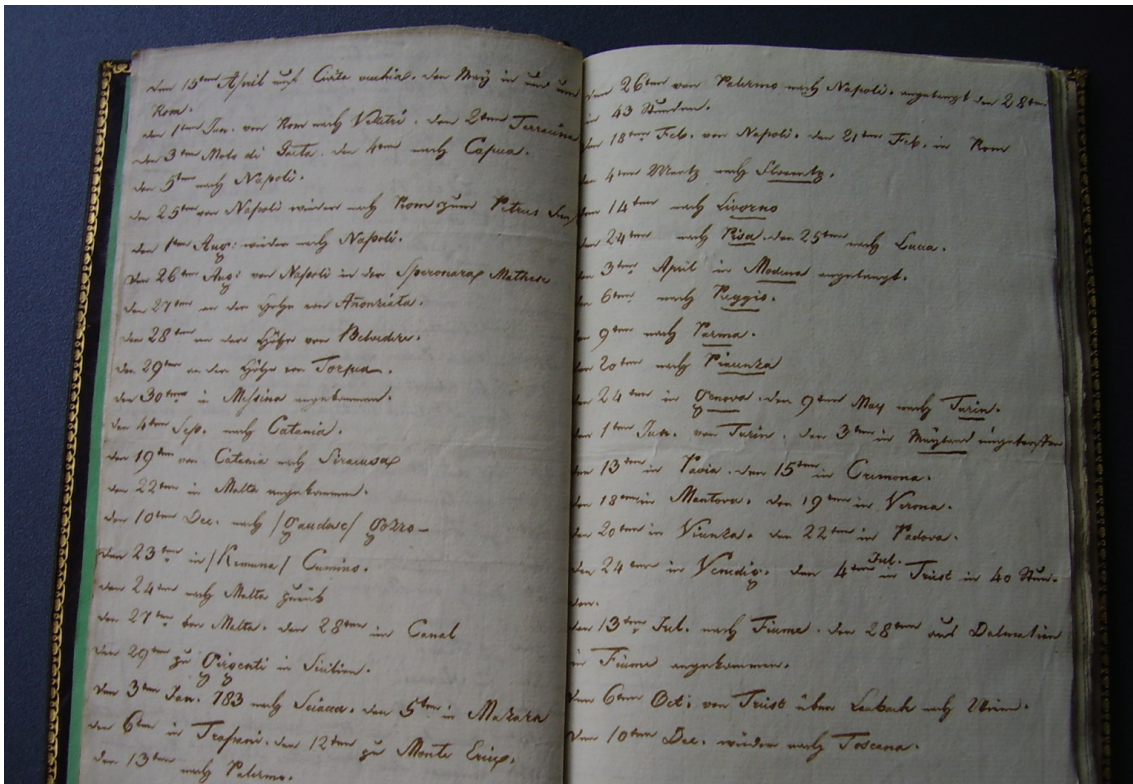 den 15ten April auf Civita vechia. den May in und um
Rom.
den 1ten Jun. von Rom nach Veletri. den 2ten Terracina
den 3ten Molo di Gaeta. den 4ten nach Capua.
den 5ten nach Napoli.
den 25ten von Napoli wieder nach Rom zum Petrus
den 1ten Aug: wieder nach Napoli.
den 26ten Aug: von Napoli in der Speronara Mathese
den 27ten an der Höhe von Añonziata.
den 28ten an der Höhe von Belvedere.
den 29ten an der Höhe von Torpea.
den 30ten in Messina angekommen.
den 4ten Sep. nach Catania.
den 19ten von Catania nach Siracusa
den 22ten in Malta angekommen.
den 10ten Dec. nach /Gaudese/ Gozzo
den 23ten in /Kemuna/ Cumino.
den 24ten nach Malta zurück
den 27ten von Malta. den 28ten im Canal
den 29ten zu Girgenti in Sicilien.
den 3ten Jan. 783 nach Sciacca. den 5ten in Mazara
den 6ten in Trapani. den 12ten zu Monte Erix.
den 13ten nach Palermo.
den 26ten von Palermo nach Napoli. angelangt den 28ten
in 43 Stunden.
den 18ten Feb. von Napoli. den 21ten Feb. in Rom
den 4ten Martz nach Florentz.
den 14ten nach Livorno
den 24ten nach Pisa. den 25ten nach Lucca.
den 3ten April in Modena angelangt.
den 6ten nach Reggio.
den 9ten nach Parma.
den 20ten nach Piacenza
den 24ten in Genova. den 9ten May nach Turin.
den 1ten Jun. von Turin. den 3ten in Mayland eingetroffen
den 13ten in Pavia. den 15ten in Cremona.
den 18ten in Mantova. den 19ten in Verona.
den 20ten in Vicenza. den 22ten in Padova.
den 24ten in Venedig. den 4ten Jul. in Triest in 40 Stun-
den.
den 13ten Jul. nach Fiume. den 28ten aus Dalmatien
in Fiume angekommen.
den 6ten Oct: von Triest über Laubach nach Wien.
den 10ten Dec. wieder nach Toscana.